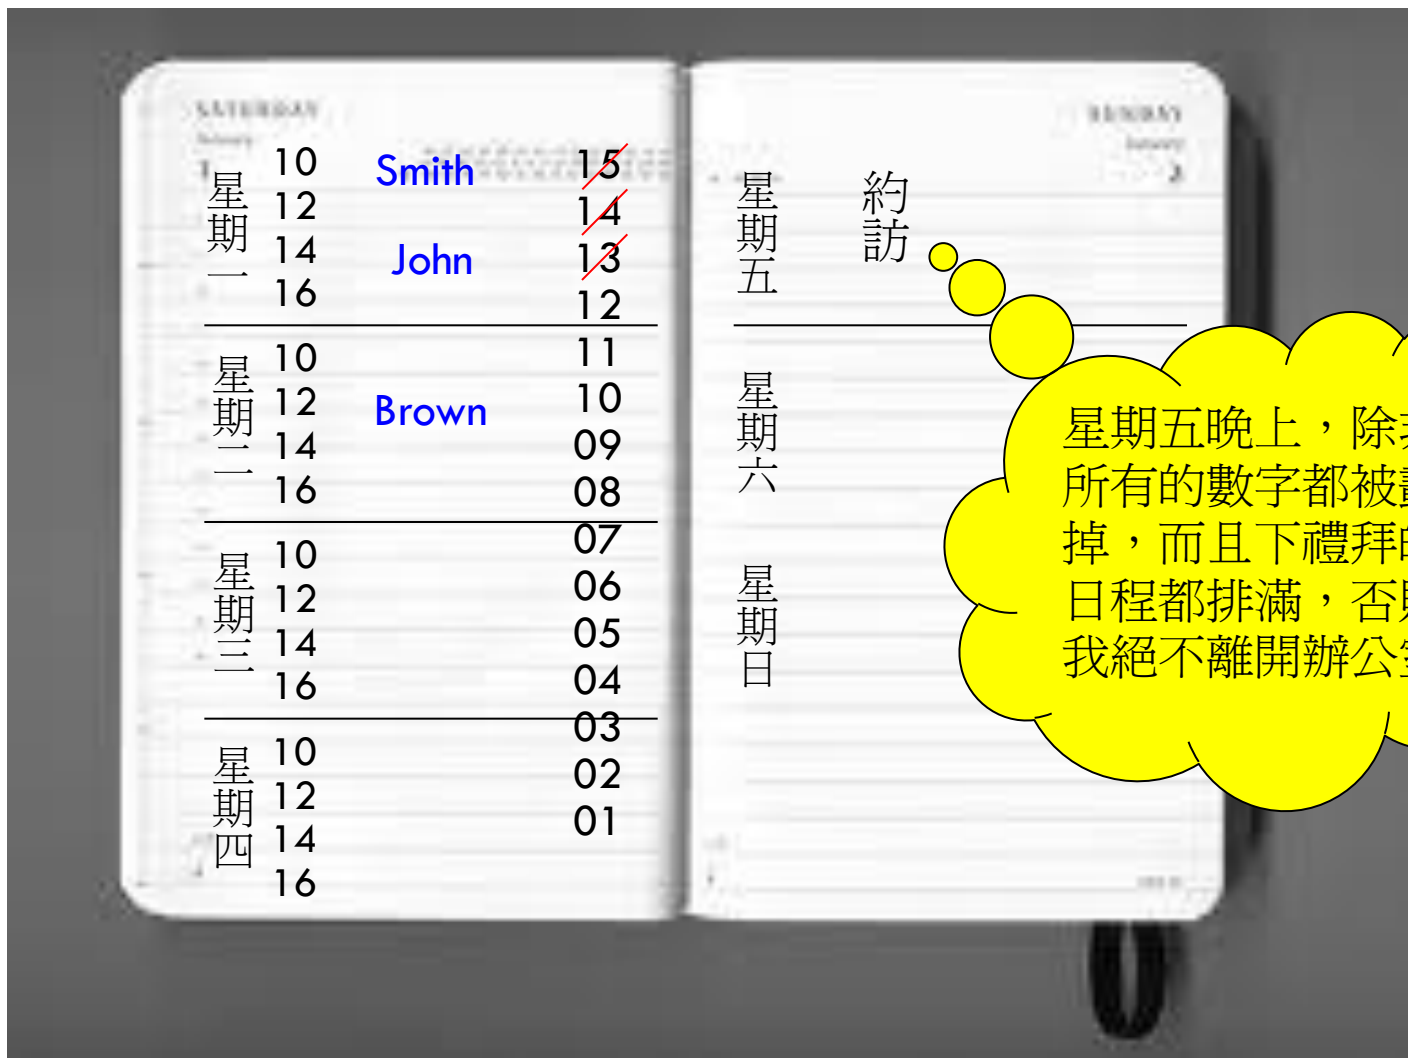 SATURDAY
星期一
10
12
14
16
Smith
John
星期二
10
12
14
16
Brown
星期三
10
12
14
16
星期四
10
12
14
16
15
14
13
12
11
10
09
08
07
06
05
04
03
02
01
SUNDAY
星期五
約訪
星期六
星期日
星期五晚上，除
所有的數字都被
掉，而且下禮拜
日程都排滿，否
我絕不離開辦公